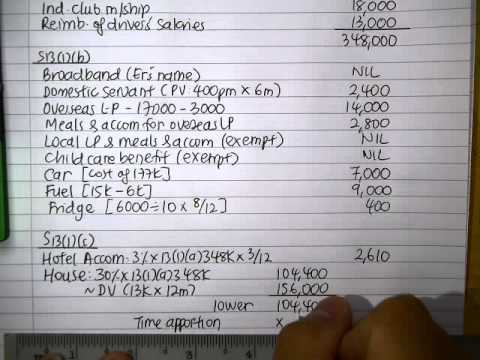 Ind. club m/ship 18,000
Reimb. of drivers' Salaries 13,000
348,000
S13(1)(b)
Broadband (Er's name) NIL
Domestic Servant (PV: 400pm x 6m) 2,400
Overseas LP - 17000 - 3000 14,000
Meals & accom for overseas LP 2,800
Local LP & meals & accom (exempt) NIL
Child care benefit (exempt) NIL
Car [cost of 177k] 7,000
Fuel [15k - 6k] 9,000
Fridge [6000 ÷ 10 x 8/12] 400
S13(1)(c)
Hotel Accom: 3% x 13(1)(a) 348K x 3/12 2,610
House: 30% x 13(1)(a) 348K 104,400
~ DV (13K x 12m) 156,000
lower 104,40
Time apportion x